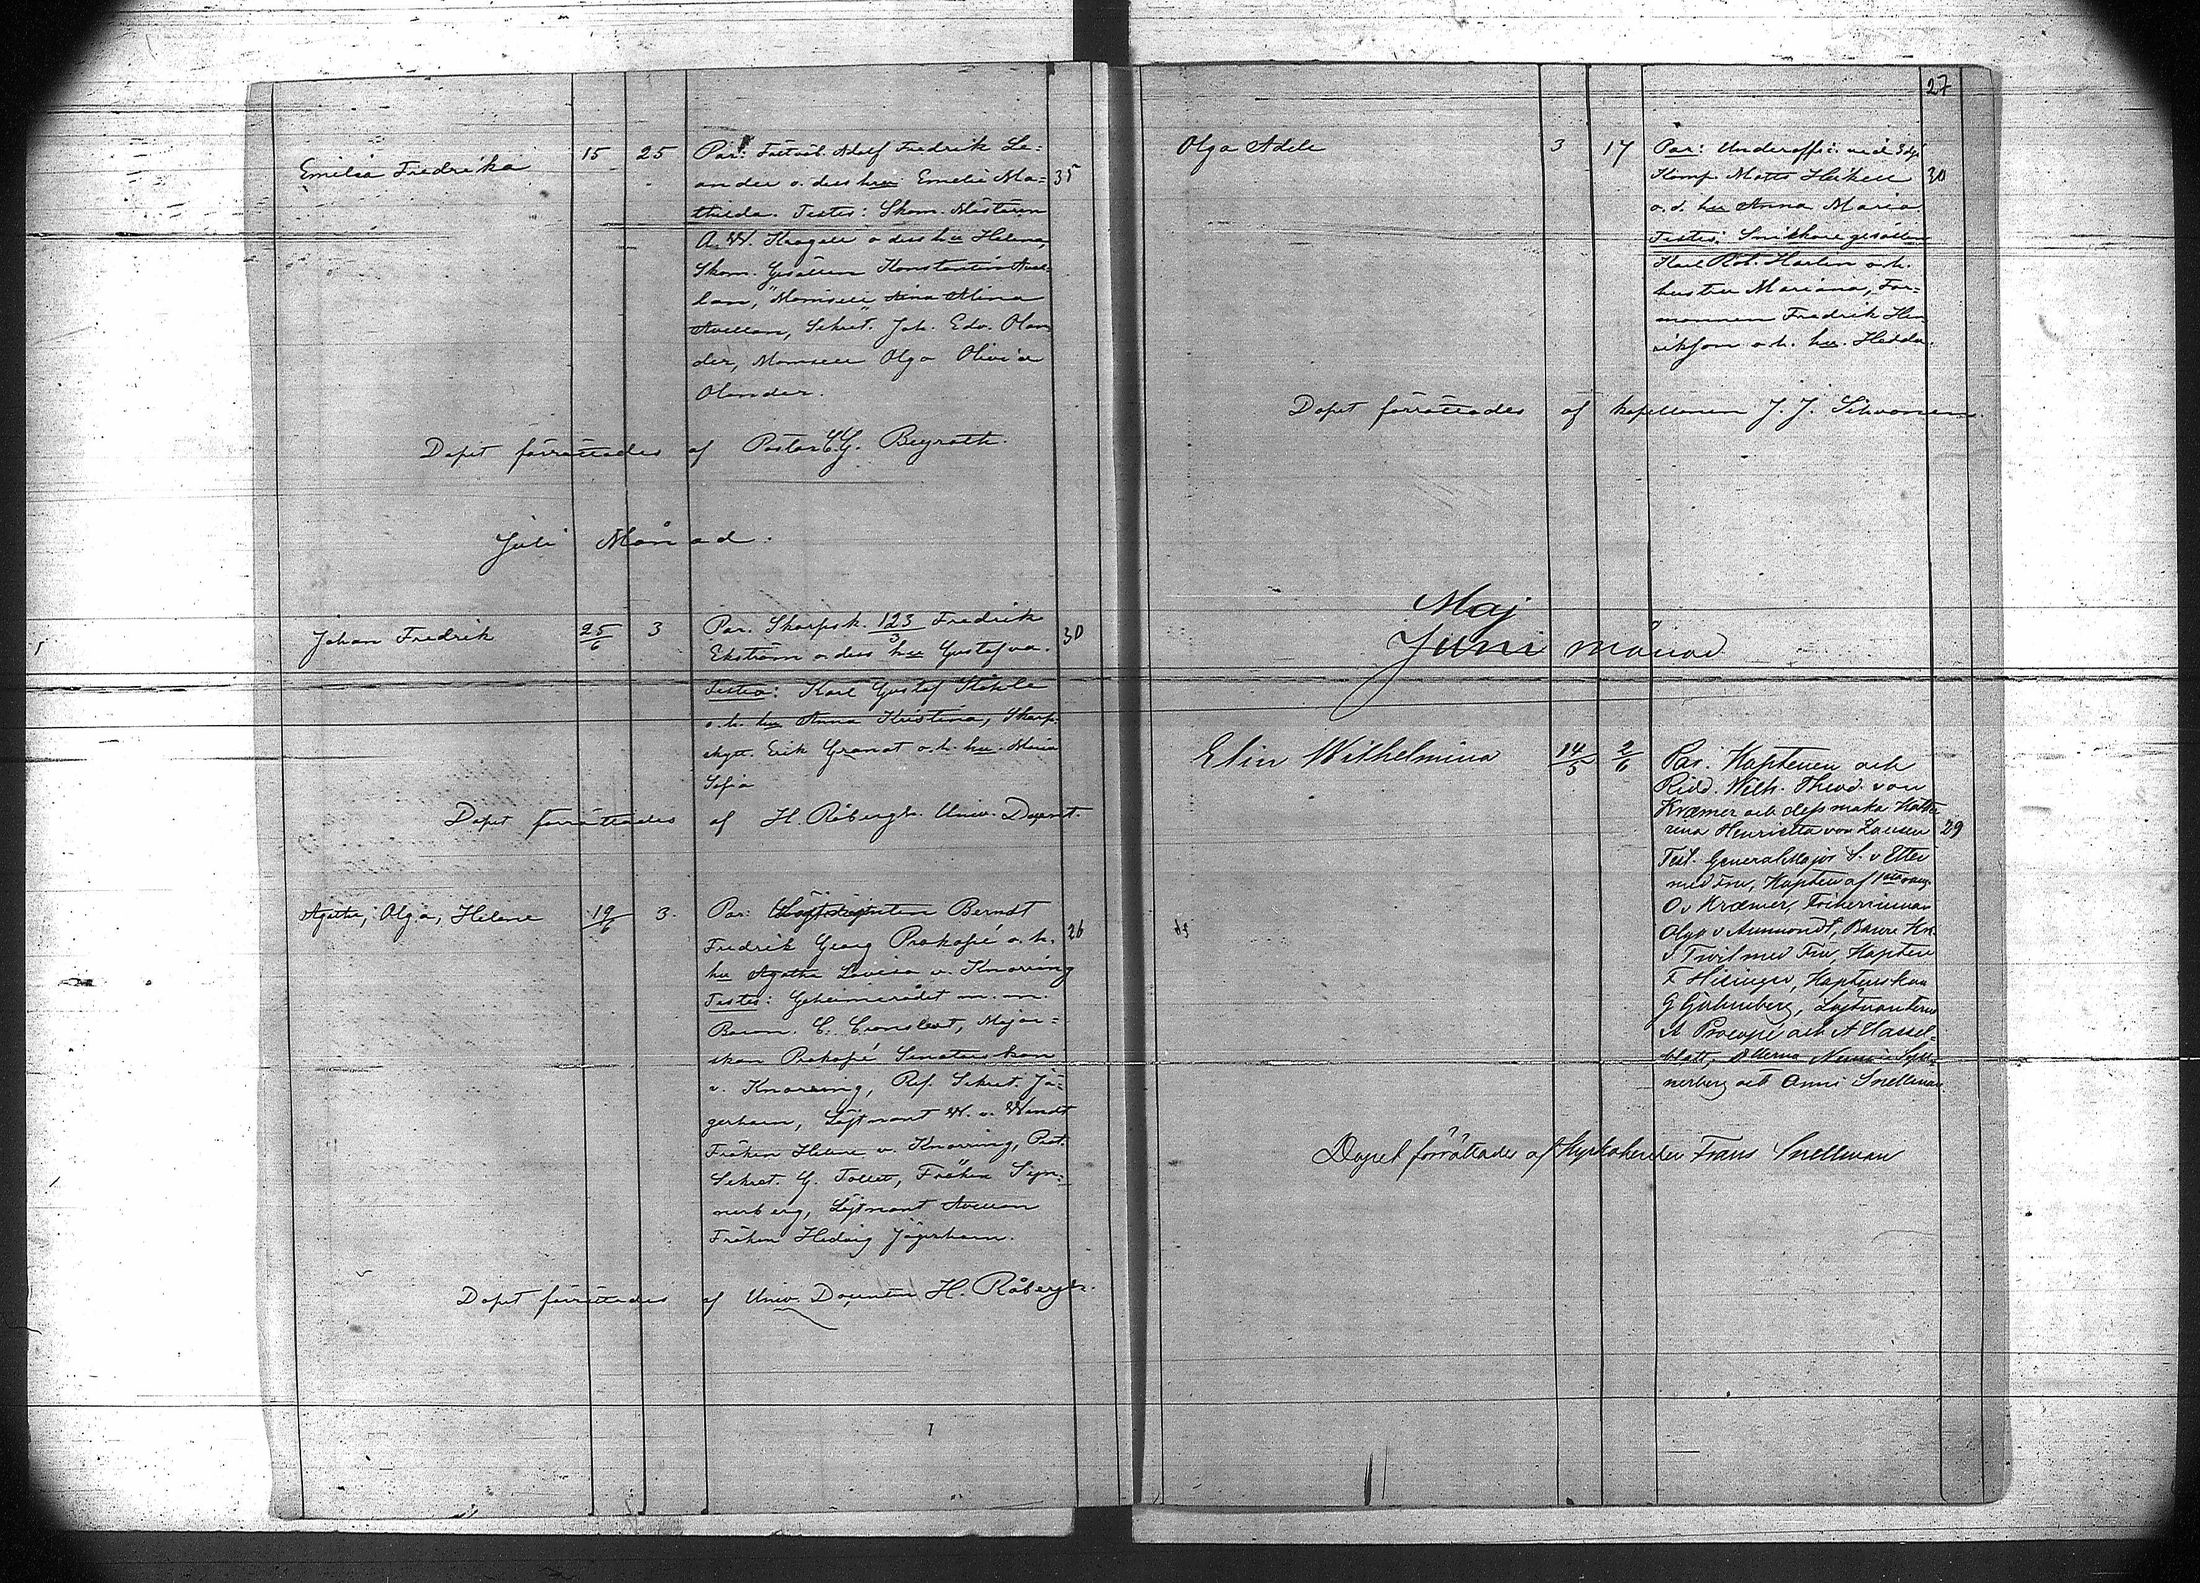 Emilia Fredrika 15 25 Par: Adolf Fredrik Le=
ander o. dess hu Emelie Ma= 35
thilda. Testes: Skom. Mästaren
A. W. o dess hu Helena,
Skom. Gesällen Konstantin Avel=
lan, Mamsell Alina
Avellan, Sekret. Joh. Edv. Olan
der, Mamsell Olga Olivia
Olander.
Dopet förrättades af Pastor C. G. Beyrath.
Juli Månad.
Johan Fredrik 25/6 3 Par. Skarpsk. 123/3 Fredrik 30
Ekström o dess hu Gustafva.
Testes: Karl Gustaf Ståhle
o. h. hu Anna Kristina, Skarp.
skytt. Erik Granat o. h. hu. Maria
Sofia
Dopet förrättades af H. Råbergh. Univ. Docent.
Agatha, Olga, Helene 19/6 3. Par: Löjtnanten Berndt
Fredrik Georg Prokopé o. h. 26
hu Agatha Lovisa v. Knorring
Testes: Geheimerådet m. m.
Baron. C. Cronstedt, Major=
skan Prokopé Senatorskan
v. Knorring, Ref. Sekret. Jä=
gerhorn, Löjtnant W. v. Wendt
Fröken Helene v. Knorring, Prot.
Sekret. G. Tollet, Fröken Syn=
nerberg, Löjtnant Avellan
Fröken Hedvig Jägerhorn.
Dopet förrättades af Univ. Docenten H. Råbergh.
27
Olga Adele 3 17 Par: Underoffic. vid 3dje
Komp. Matts Heikell 30
o. d. hu Anna Maria
Testes: Snickare gesällen
Karl Rob. Harlin o. h.
hustru Mariana, For=
mannen Fredrik Hen
rikson o. h. hu. Hedda.
Dopet förrättades af kapellanen J. J. Sihvonen.
Maj
Juni månad
Elin Wilhelmina 14/5 2/6 Par. Kaptenen och
Ridd. Wilh. Theod. von
Kræmer och dess maka Katha
rina Henrietta von Zansen 29
Test. Generalmajor S. v Etter
med Fru, Kapten af 1sta rang.
O v Kræmer, Friherrinnan
Olga v Ammondt, Baron
med Fru, Kapten
F Hisinger, Kaptenskan
G Löjtnanterne
A Procopé och A Hassel=
blatt, Synn=
nerberg och Anni Snellman.
Dopet förrättades af Kyrkoherden Frans Snellman